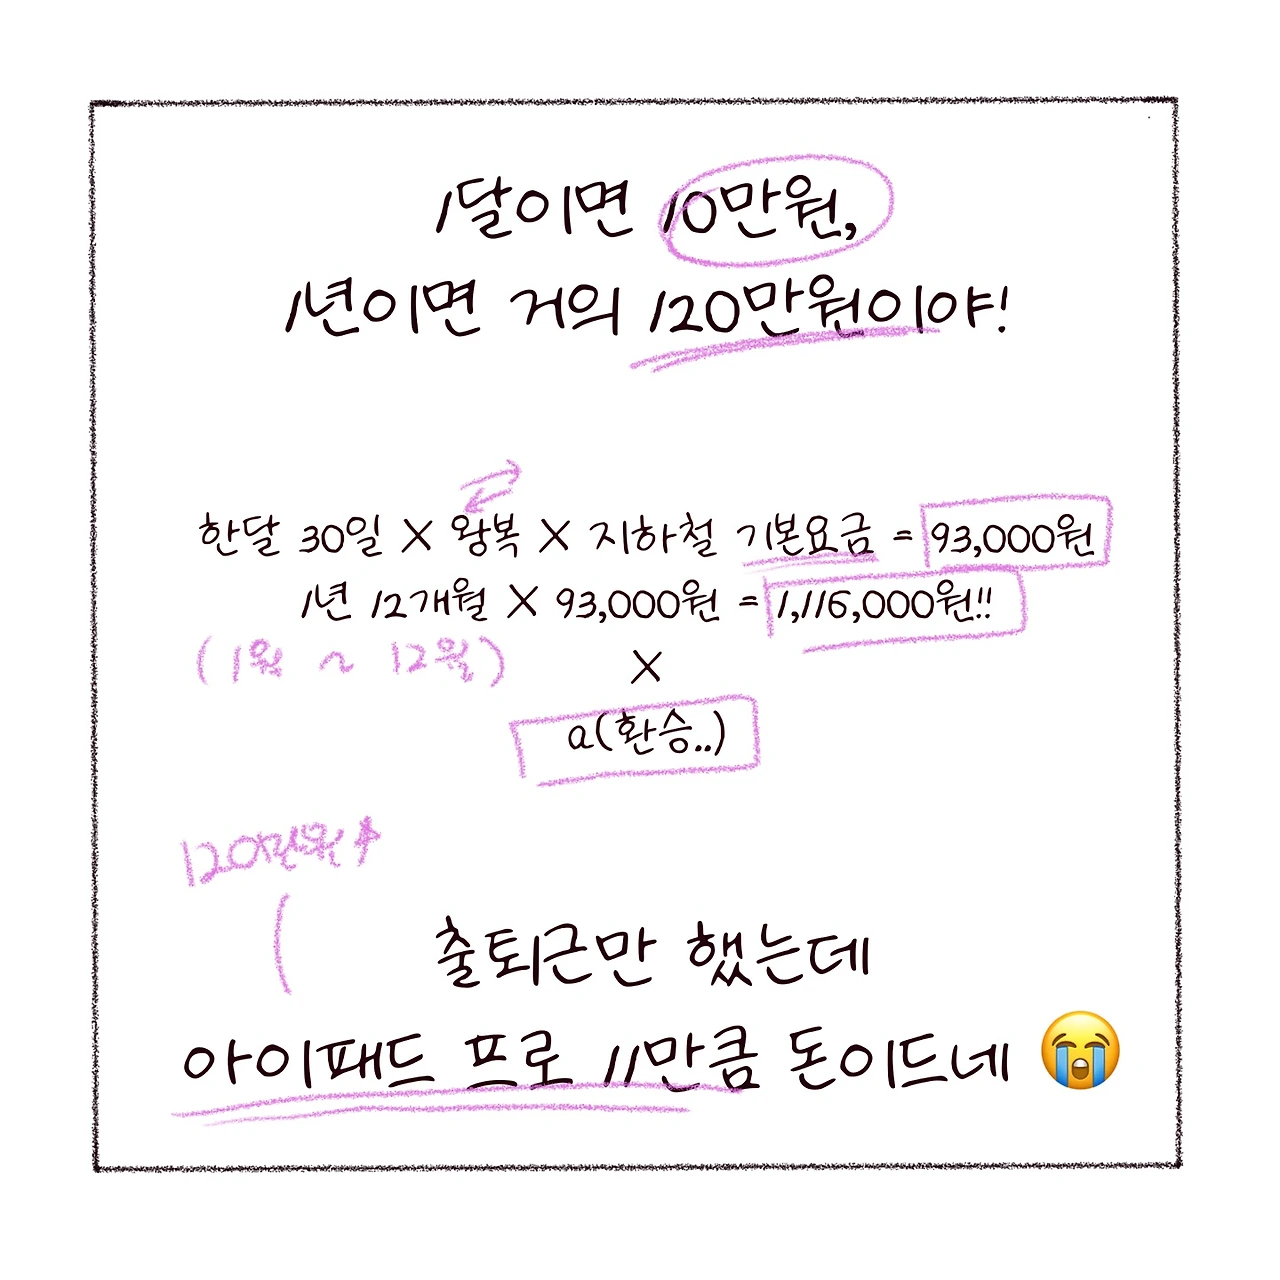 1달이면 10만원,
1년이면 거의 120만원이야!
한달 30일 X 왕복 X 지하철 기본요금 = 93,000원
1년 12개월 X 93,000원 = 1,116,000원!!
(1월 ~ 12월)
X
a(환승..)
120만원↑
출퇴근만 했는데
아이패드 프로 11만큼 돈이드네 😭